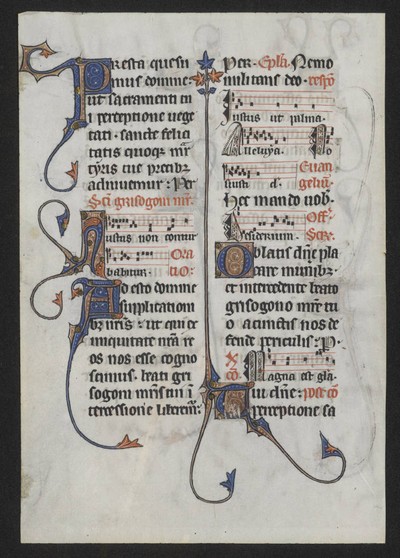 Presta quesu
mus domine:
ut sacramenti tu
i perceptione uege
tati. sancte felici
tatis quoque mr̄
tyris tue precibʒ
adiuuemur: Per
Sc̄i grisogoni mr̄.
Iustus non contur
babitur. Ora
tio:
Adesto domine
supplicationi
bʒ nr̄is: ut qui ex
iniquitate nr̄a re
os nos esse cogno
scimus. beati gri
sogoni mr̄is tui i
tercessione liberem̄:
Per. Epl̄a. Nemo
militans deo. resp̄o
Iustus ut palma.
Alleluya. Po
suisti d. Euan
gelium.
Hec mando uob.
Off̄.
Desiderium. Secr̄.
Oblatis dn̄e pla
care munibʒ.
et intercedente beato
grisogono mr̄e tu
o a cunctis nos de
fende periculis: P.
cō. Magna est gla.
Tui dn̄e: post cō
perceptione sa